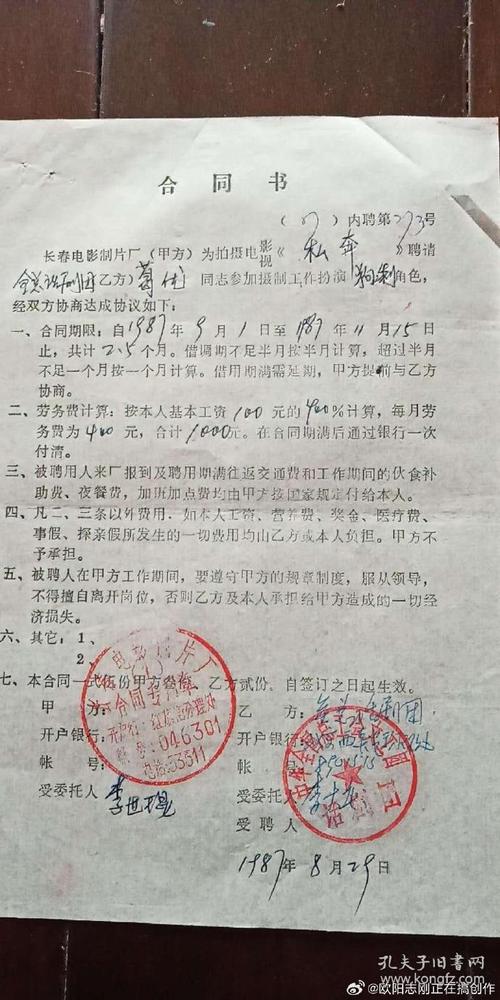 合同书
(87)内聘第273号
长春电影制片厂(甲方)为拍摄电影视《私奔》聘请
全总话剧团乙方)葛优同志参加摄制工作扮演狗剩角色,
经双方协商达成协议如下:
一、合同期限:自1987年9月1日至1987年11月15日
止,共计2.5个月。借调期不足半月按半月计算,超过半月
不足一个月按一个月计算。借用期满需延期,甲方提前与乙方
协商。
二、劳务费计算:按本人基本工资100元的400%计算,每月劳
务费为400元,合计1000元。在合同期满后通过银行一次
付清。
三、被聘用人来厂报到及聘用期满往返交通费和工作期间的伙食补
助费、夜餐费,加班加点费均由甲方按国家规定付给本人。
四、凡二、三条以外费用,如本人工资、营养费、奖金、医疗费、
事假、探亲假所发生的一切费用均由乙方或本人负担。甲方不
予承担。
五、被聘人在甲方工作期间,要遵守甲方的规章制度,服从领导,
不得擅自离开岗位,否则乙方及本人承担给甲方造成的一切经
济损失。
六、其它:1、
2、
七、本合同一式伍份甲方叁份,乙方贰份,自签订之日起生效。
甲方: 乙方:全总话剧团
开户银行: 开户银行:
帐号: 帐号:
受委托人 受委托人
受聘人
1987年8月29日
电影制片厂
合同专用章
046301
电话53311
话剧团
孔夫子旧书网
@欧阳志刚正在搞创作